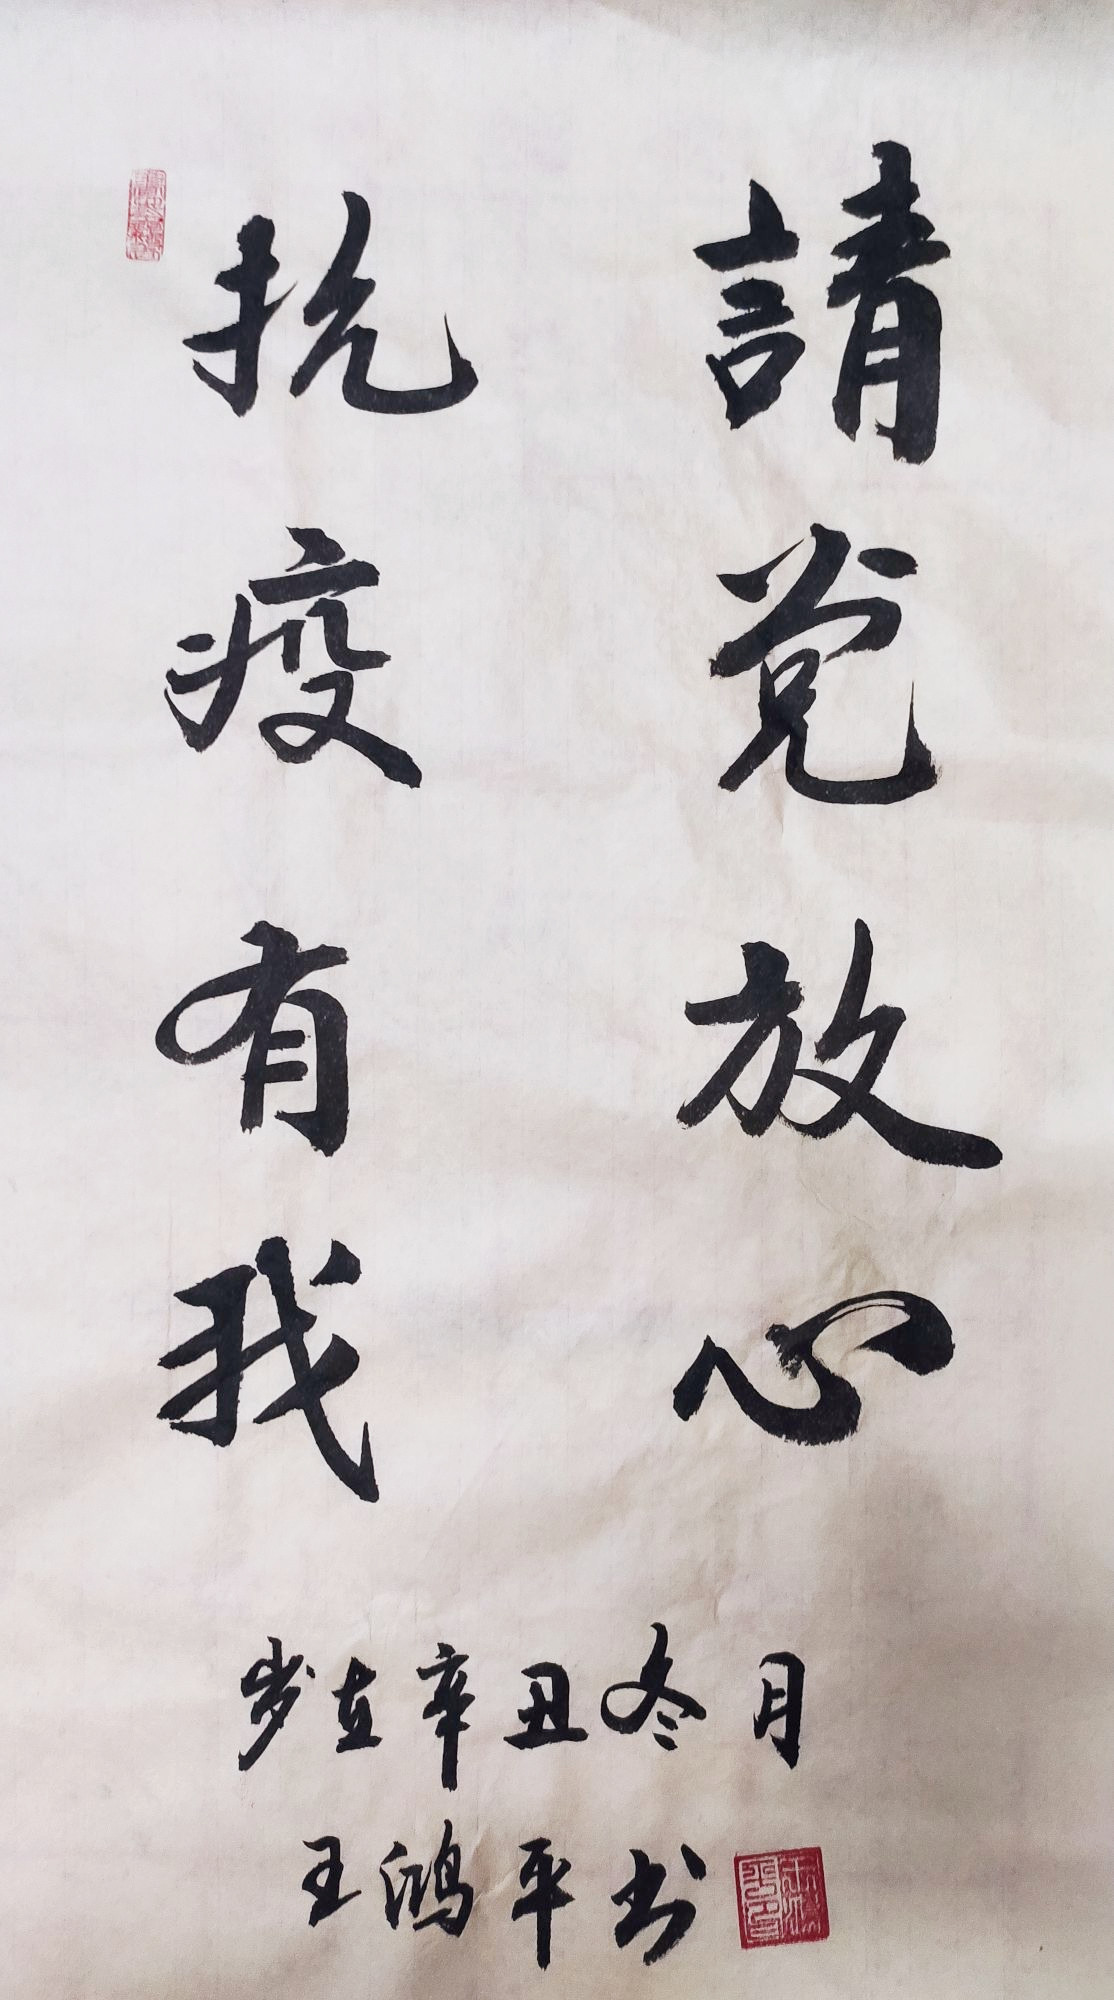 請党放心
抗疫有我
岁在辛丑冬月
王鸿平书